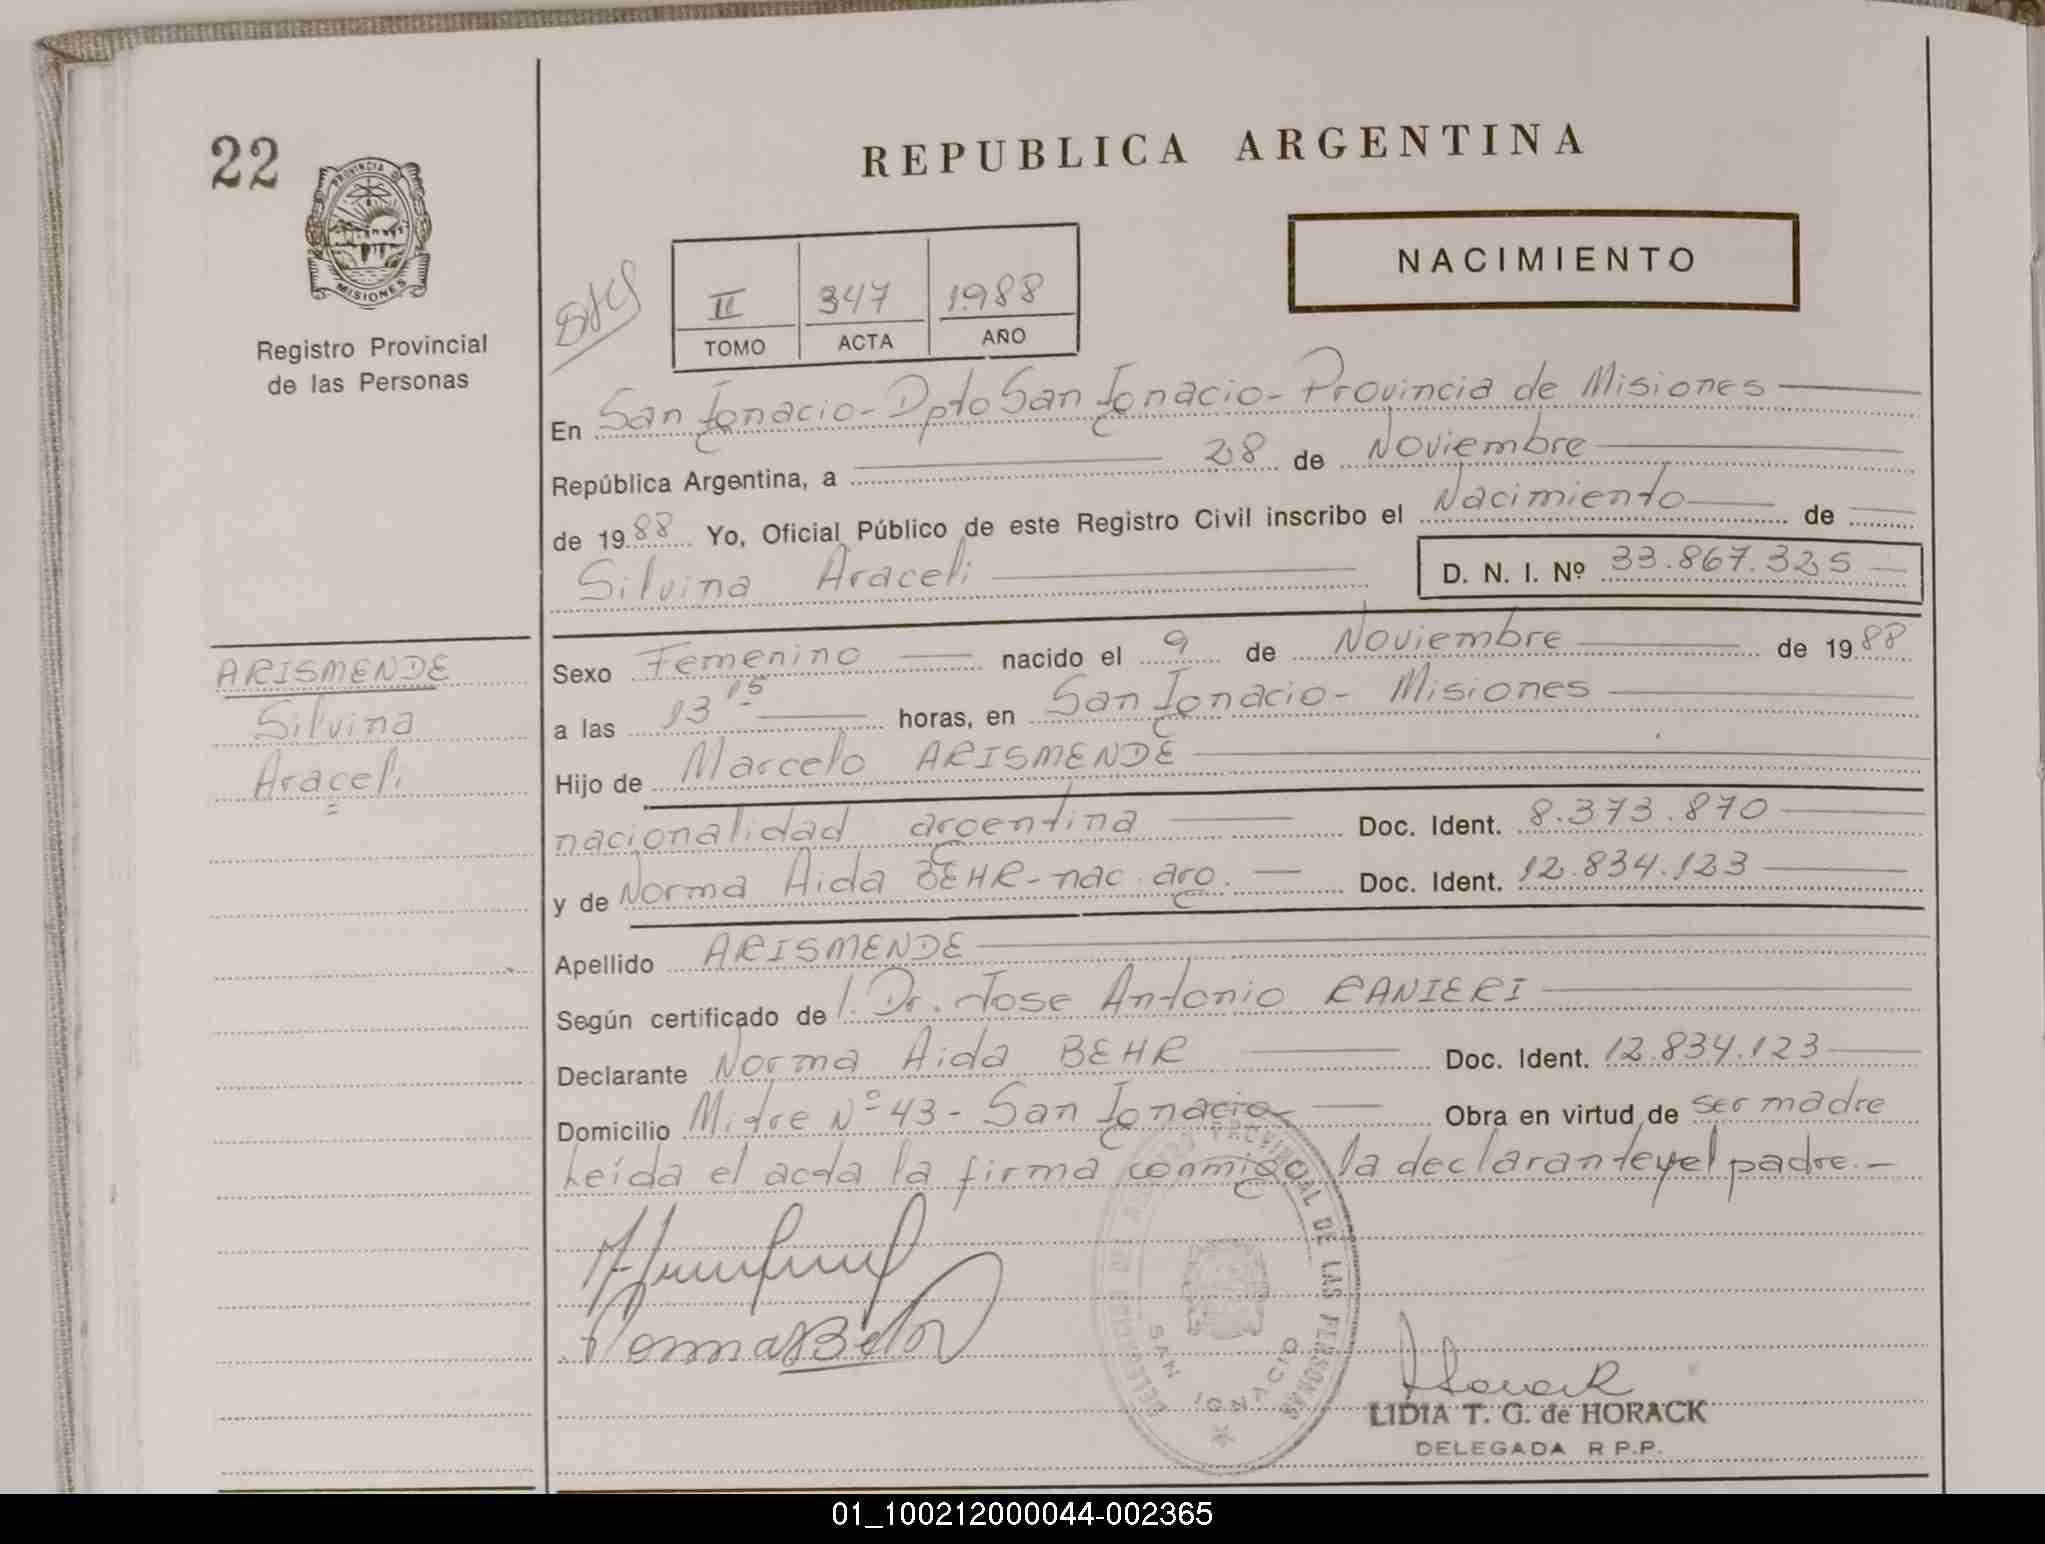 22
PROVINCIA DE
MISIONES
Registro Provincial
de las Personas
REPUBLICA ARGENTINA
NACIMIENTO
II 347 1988
TOMO ACTA AÑO
En San Ignacio - Dpto San Ignacio - Provincia de Misiones
República Argentina, a 28 de Noviembre
de 1988 Yo, Oficial Público de este Registro Civil inscribo el Nacimiento de
Silvina Araceli D. N. I. Nº 33.867.325
ARISMENDE
Silvina
Araceli
Sexo Femenino nacido el 9 de Noviembre de 1988
a las 13 15 horas, en San Ignacio - Misiones
Hijo de Marcelo ARISMENDE
nacionalidad argentina Doc. Ident. 8.373.870
y de Norma Aida BEHR - nac. arg. Doc. Ident. 12.834.123
Apellido ARISMENDE
Según certificado de l. Dr. Jose Antonio RANIERI
Declarante Norma Aida BEHR Doc. Ident. 12.834.123
Domicilio Mitre Nº 43 - San Ignacio Obra en virtud de ser madre
Leída el acta la firma conmigo la declarante y el padre.-
PROVINCIAL DE LAS PERSONAS
SAN IGNACIO
Norma Behr
Horack
LIDIA T. G. de HORACK
DELEGADA R P.P.
01_100212000044-002365